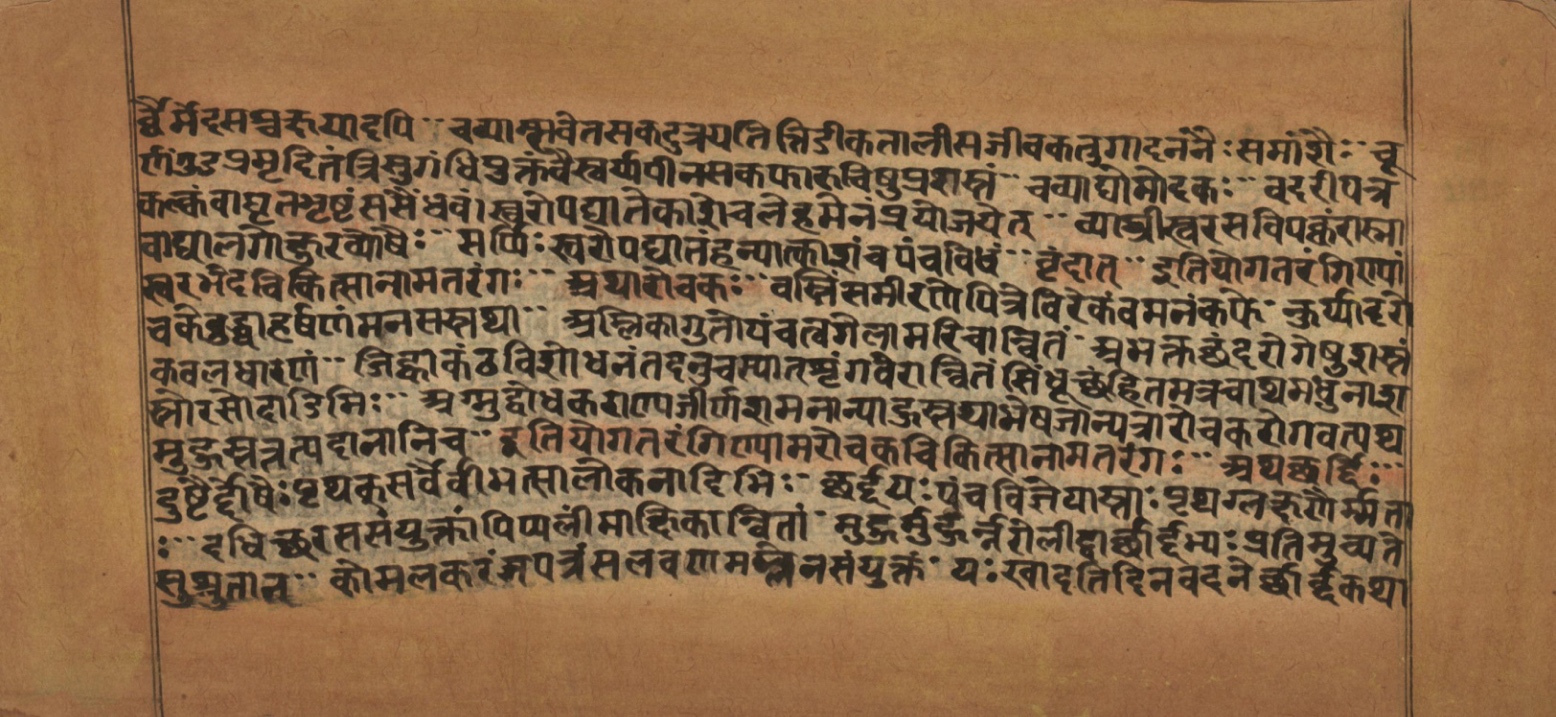 र्व्वैर्मेदसश्चक्षयादपि ¨ चव्याम्लवेतसकटुत्रयतिंतिडीकतालीसजीवकतुगादननैः समांशैः ¨ चू
र्णंगुडप्रमृदितंत्रिसुगंधियुक्तंवैस्वर्यपीनसकफारुचिषुप्रशस्तं ¨ चव्याद्योमोदकः ¨ वदरीपत्र
कल्कंवाघृतभृष्टंससैंधवं। स्वरोपघातेकाशेचलेहमेनंप्रयोजयेत् ¨ व्याघ्रीस्वरसविपक्वंरास्ना
वाद्यालगोक्षुरव्योषैः ¨ सर्प्पिः स्वरोपघातंहन्यात्काशंचपंचविधं ¨ वृंदात् ¨ इतियोगतरंगिण्यां
स्वरभेदचिकित्सानामतरंगः ¨ अथारोचकः ¨ वस्तिंसमीरणेपित्तेविरेकंवमनंकफे ¨ कुर्य्यादरो
चकेवुद्ध्वाहर्षणंमनसस्तथा ¨ अम्लिकागुतोयंचत्वगेलामरिचान्वितं ¨ अभक्तछंदरोगेषुशस्तं
कवलधारणं ¨ जिह्वाकंठविशोधनंतदनुचस्यातशृंगवेरान्वितंसिंधूच्छंहितमत्रचाथमधुनाश
स्तोरसोदाडिमिः ¨ अग्न्युद्वोधकराण्यजीर्णशमनान्याहुस्तथाभेषजान्यत्रारोचकरोगवत्पथ्य
मुहुस्तत्तत्पदानानिच ¨ इतियोगतरंगिण्यामरोचकचिकित्सानामतरंगः ¨ अथछर्दिः ¨
दुष्टैर्दोषैः पृथक्सर्वैर्वीभत्सालोकनादिभिः ¨ छर्दयः पंचविज्ञेयास्ताः पृथग्लक्षणैर्म्मता
ः ¨ दधिच्छरससंयुक्तांपिप्पलींमाक्षिकान्वितां ¨ मुहुर्मुहुर्न्नरोलीढ्वाछर्दिभ्यः प्रतिमुच्यते
सुश्रुतात् ¨ कोमलकरंजपत्रंसलवणमम्लेनसंयुक्तं ¨ यः खादतिदिनवदनेछर्दिकथा